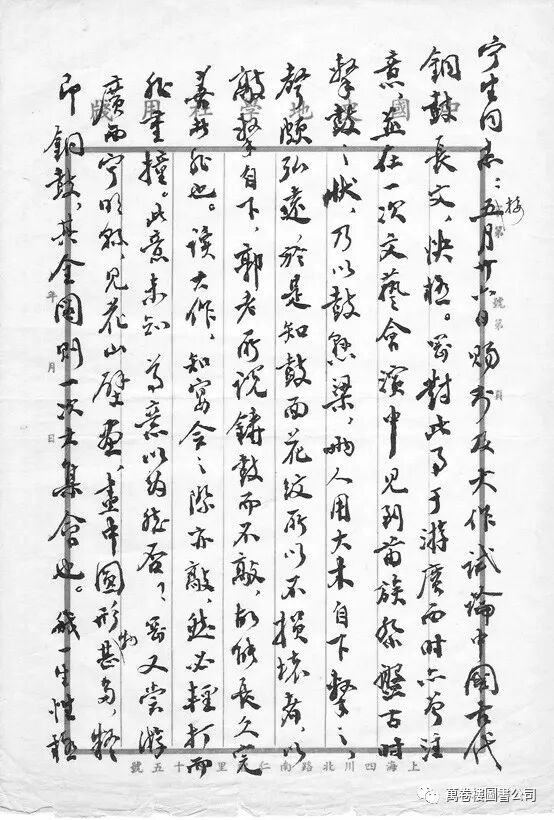 宁生同志：接五月廿六日赐书及大作试论中国古代
銅鼓長文，快極。對此事于游廣西时亦曾注
意，並在一次文藝會演中見到苗族祭盤古时
擊鼓之狀，乃以鼓懸梁，兩人用大木自下擊之，
聲頗弘遠，於是知鼓面花紋所以不損壞者，以
敲擊自下，郭老所说鑄鼓而不敲，故能長久完
美者非也。读大作，知宴会之際亦敲，然必輕打而
非重撞。此意未知尊意以为然否？又尝游
廣西宁明縣，見花山壁画，畫中圆形物甚多，疑
即銅鼓，其全圖則一次大集會也。一生性極
國地學社用牋
第 號 第 頁
年 月 日
上海四川北路南仁里十五號
萬卷樓圖書公司